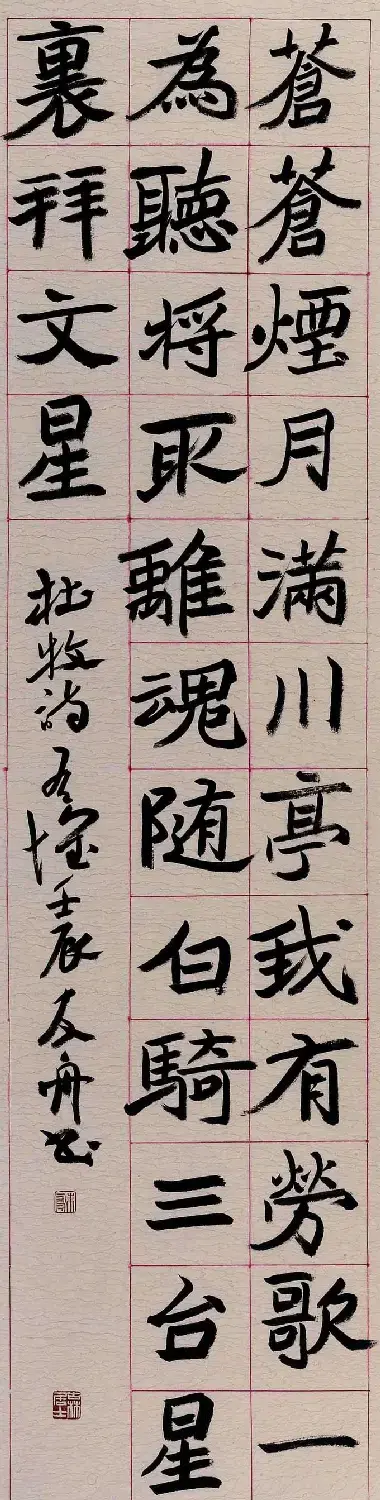 蒼蒼煙月滿川亭我有勞歌一
為聽将取離魂随白騎三台星
裏拜文星
杜牧詩有懷壬辰友舟書